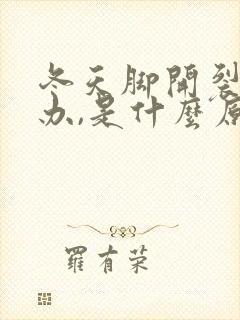 冬天脚開裂
办,是什麽原
羅有荣